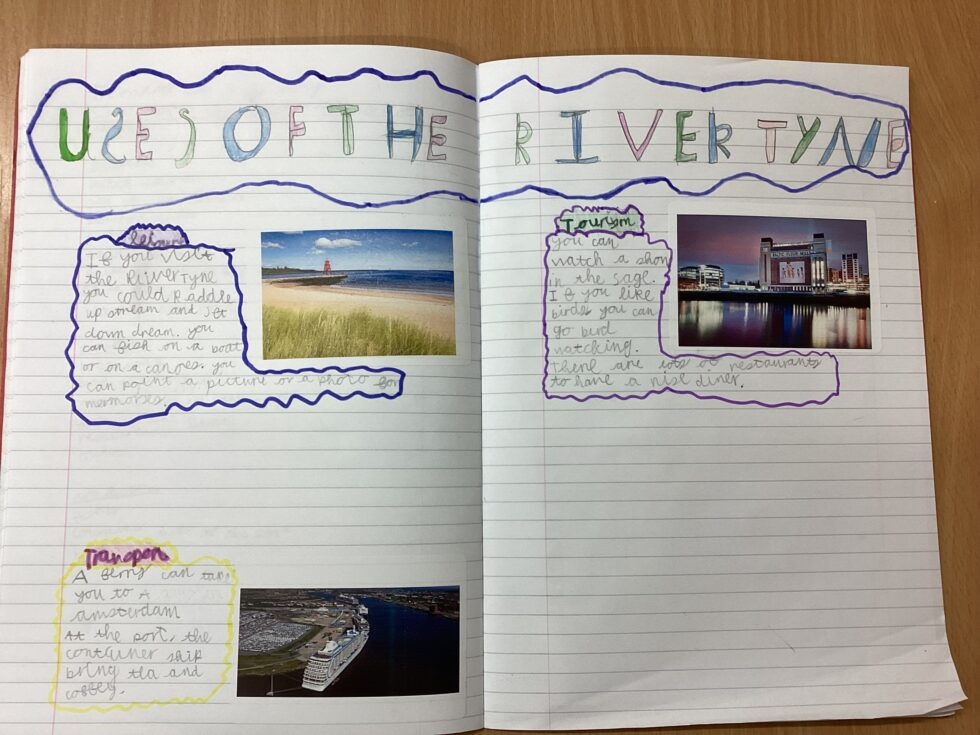 USES OF THE RIVER TYNE
If you visit
the River Tyne
you could Paddle
up stream and jet
down dream. you
can fish on a boat
or on a canoes. you
can paint a picture or a photo for
memories.
Tourism
you can
watch a show
in the sage.
If you like
birds you can
go bird
watching.
there are lots of restaurants
to have a nise diner.
Transpor
A ferry can take
you to A
amsterdam
At the port, the
container ship
bring tea and
coffey.